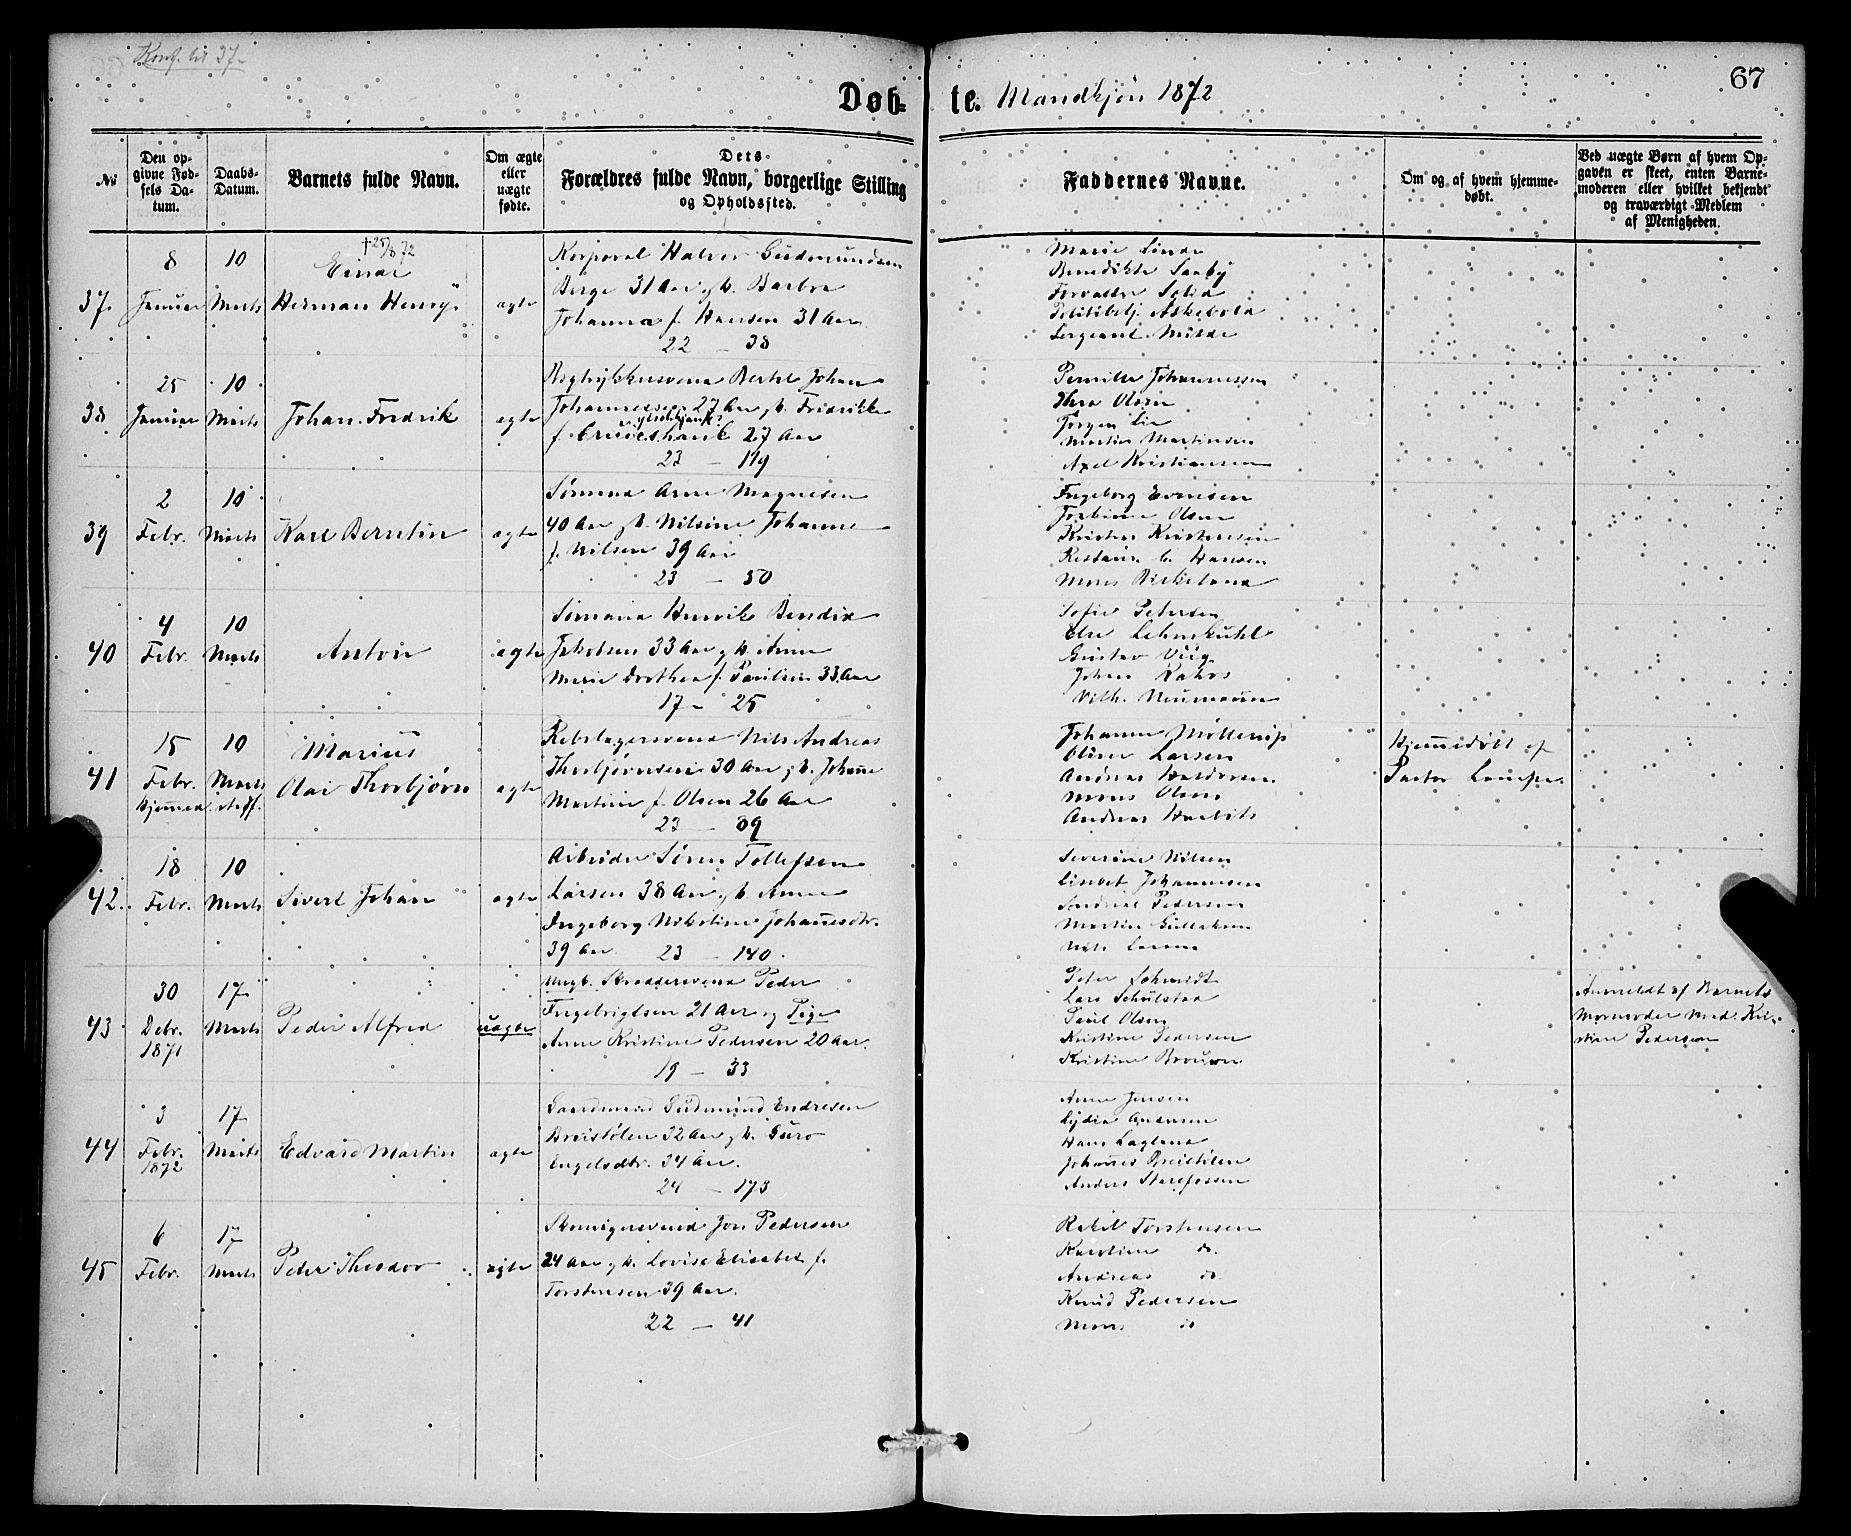 Konf. til 37.
67
Døb-te. Mandkjøn 1872
№
Den op-
givne Fød-
sels Da-
tum.
Daabs-
Datum.
Barnets fulde Navn.
Om ægte
eller
uægte
fødte.
Dets
Forældres fulde Navn, borgerlige Stilling
og Opholdssted.
Faddernes Navne.
Om og af hvem hjemme-
døbt.
Ved uægte Børn af hvem Op-
gaven er skeet, enten Barne-
moderen eller hvilket bekjendt
og troværdigt Medlem
af Menigheden.
37.
8
Januar
10
Marts
† 25/8 72
Einar
Herman Henry
ægte
Korporal Halvor Gudmundsen
Berge 31 Aar g. h. Barbra
Johanna f. Hansen 31 Aar
22 — 38
Marie Linde
Benedikte Saaby
Askevold
Sergeant Milde
38
25
Januar
10
Marts
Johan Fredrik
ægte
Bogtrykkersvend Bertel Johan
Johannessen 27 Aar g. h. Fridrikke
27 Aar
23 — 119
Pernille Johannessen
Olsen
Jørgen Lie
Martin Martinsen
Axel Kristiansen
39
2
Febr.
10
Marts
Karl Berntin
ægte
Sømand Arne Magnesen
40 Aar g. h. Nilsine Johanne
f. Nilsen 39 Aar
23 — 50
Ingeborg Evensen
Olsen
Kristen Kristensen
Hansen
Mons Birkeland
40
4
Febr.
10
Marts
Anton
ægte
Sømand Henrik Bendix
Jakobsen 33 Aar g. h. Anne
Marie Dorthea f. Paulsen 33 Aar
17 — 25
Sofie Petersen
Else Lehmkuhl
Gustav Viig
Johan Kahrs
Vilh. Neumann
41
15
Febr.
10
Marts
Hjemmed.
Marius
Olai Thorbjørn
ægte
Rebslagersvend Nils Andreas
Thorbjørnsen 30 Aar g. h. Johanne
Martine f. Olsen 26 Aar
23 — 89
Johanne Møllerup
Oline Larsen
Andreas Halvorsen
Mons Olsen
Andreas
Hjemmedøbt af
Pastor
42.
18
Febr.
10
Marts
Sivert Johan
ægte
Arbeider Søren Tollefsen
Larsen 38 Aar g. h. Anne
Ingeborg Nikoline Johannesdtr.
39 Aar 23 — 140.
Severine Nilsen
Lisbet Johannesen
Pedersen
Martin Gullaksen
Nils Larsen
43
30
Debr.
1871
17
Marts
Peder Alfred
uægte
Ungk. Skræddersvend Peder
Ingebrigtsen 21 Aar og Pige
Anne Kristine Pedersen 20 Aar.
19 — 33
Peter Schmidt
Lars Schulstad
Paul Olsen
Kristine Pedersen
Kristine Brouwn
Anmeldt af Barnets
Mormoder Mad. Kri-
stine Pedersen
44
3
Febr.
1872
17
Marts
Edvard Martin
ægte
Gaardmand Gudmund Endresen
Breistølen 32 Aar g. h. Guro
Engelsdtr. 34 Aar.
24 — 173
Anne Jensen
Lydia Andersen
Hans
Johannes Breistølen
Anders Storefossen
45
6
Febr.
17
Marts
Peder Theodor
ægte
Jon Pedersen
24 Aar g. h. Lovise Elisabet f.
Torstensen 29 Aar.
22 — 41
Rakel Torstensen
Karoline do.
Andreas do
Knud Pedersen
Mons do